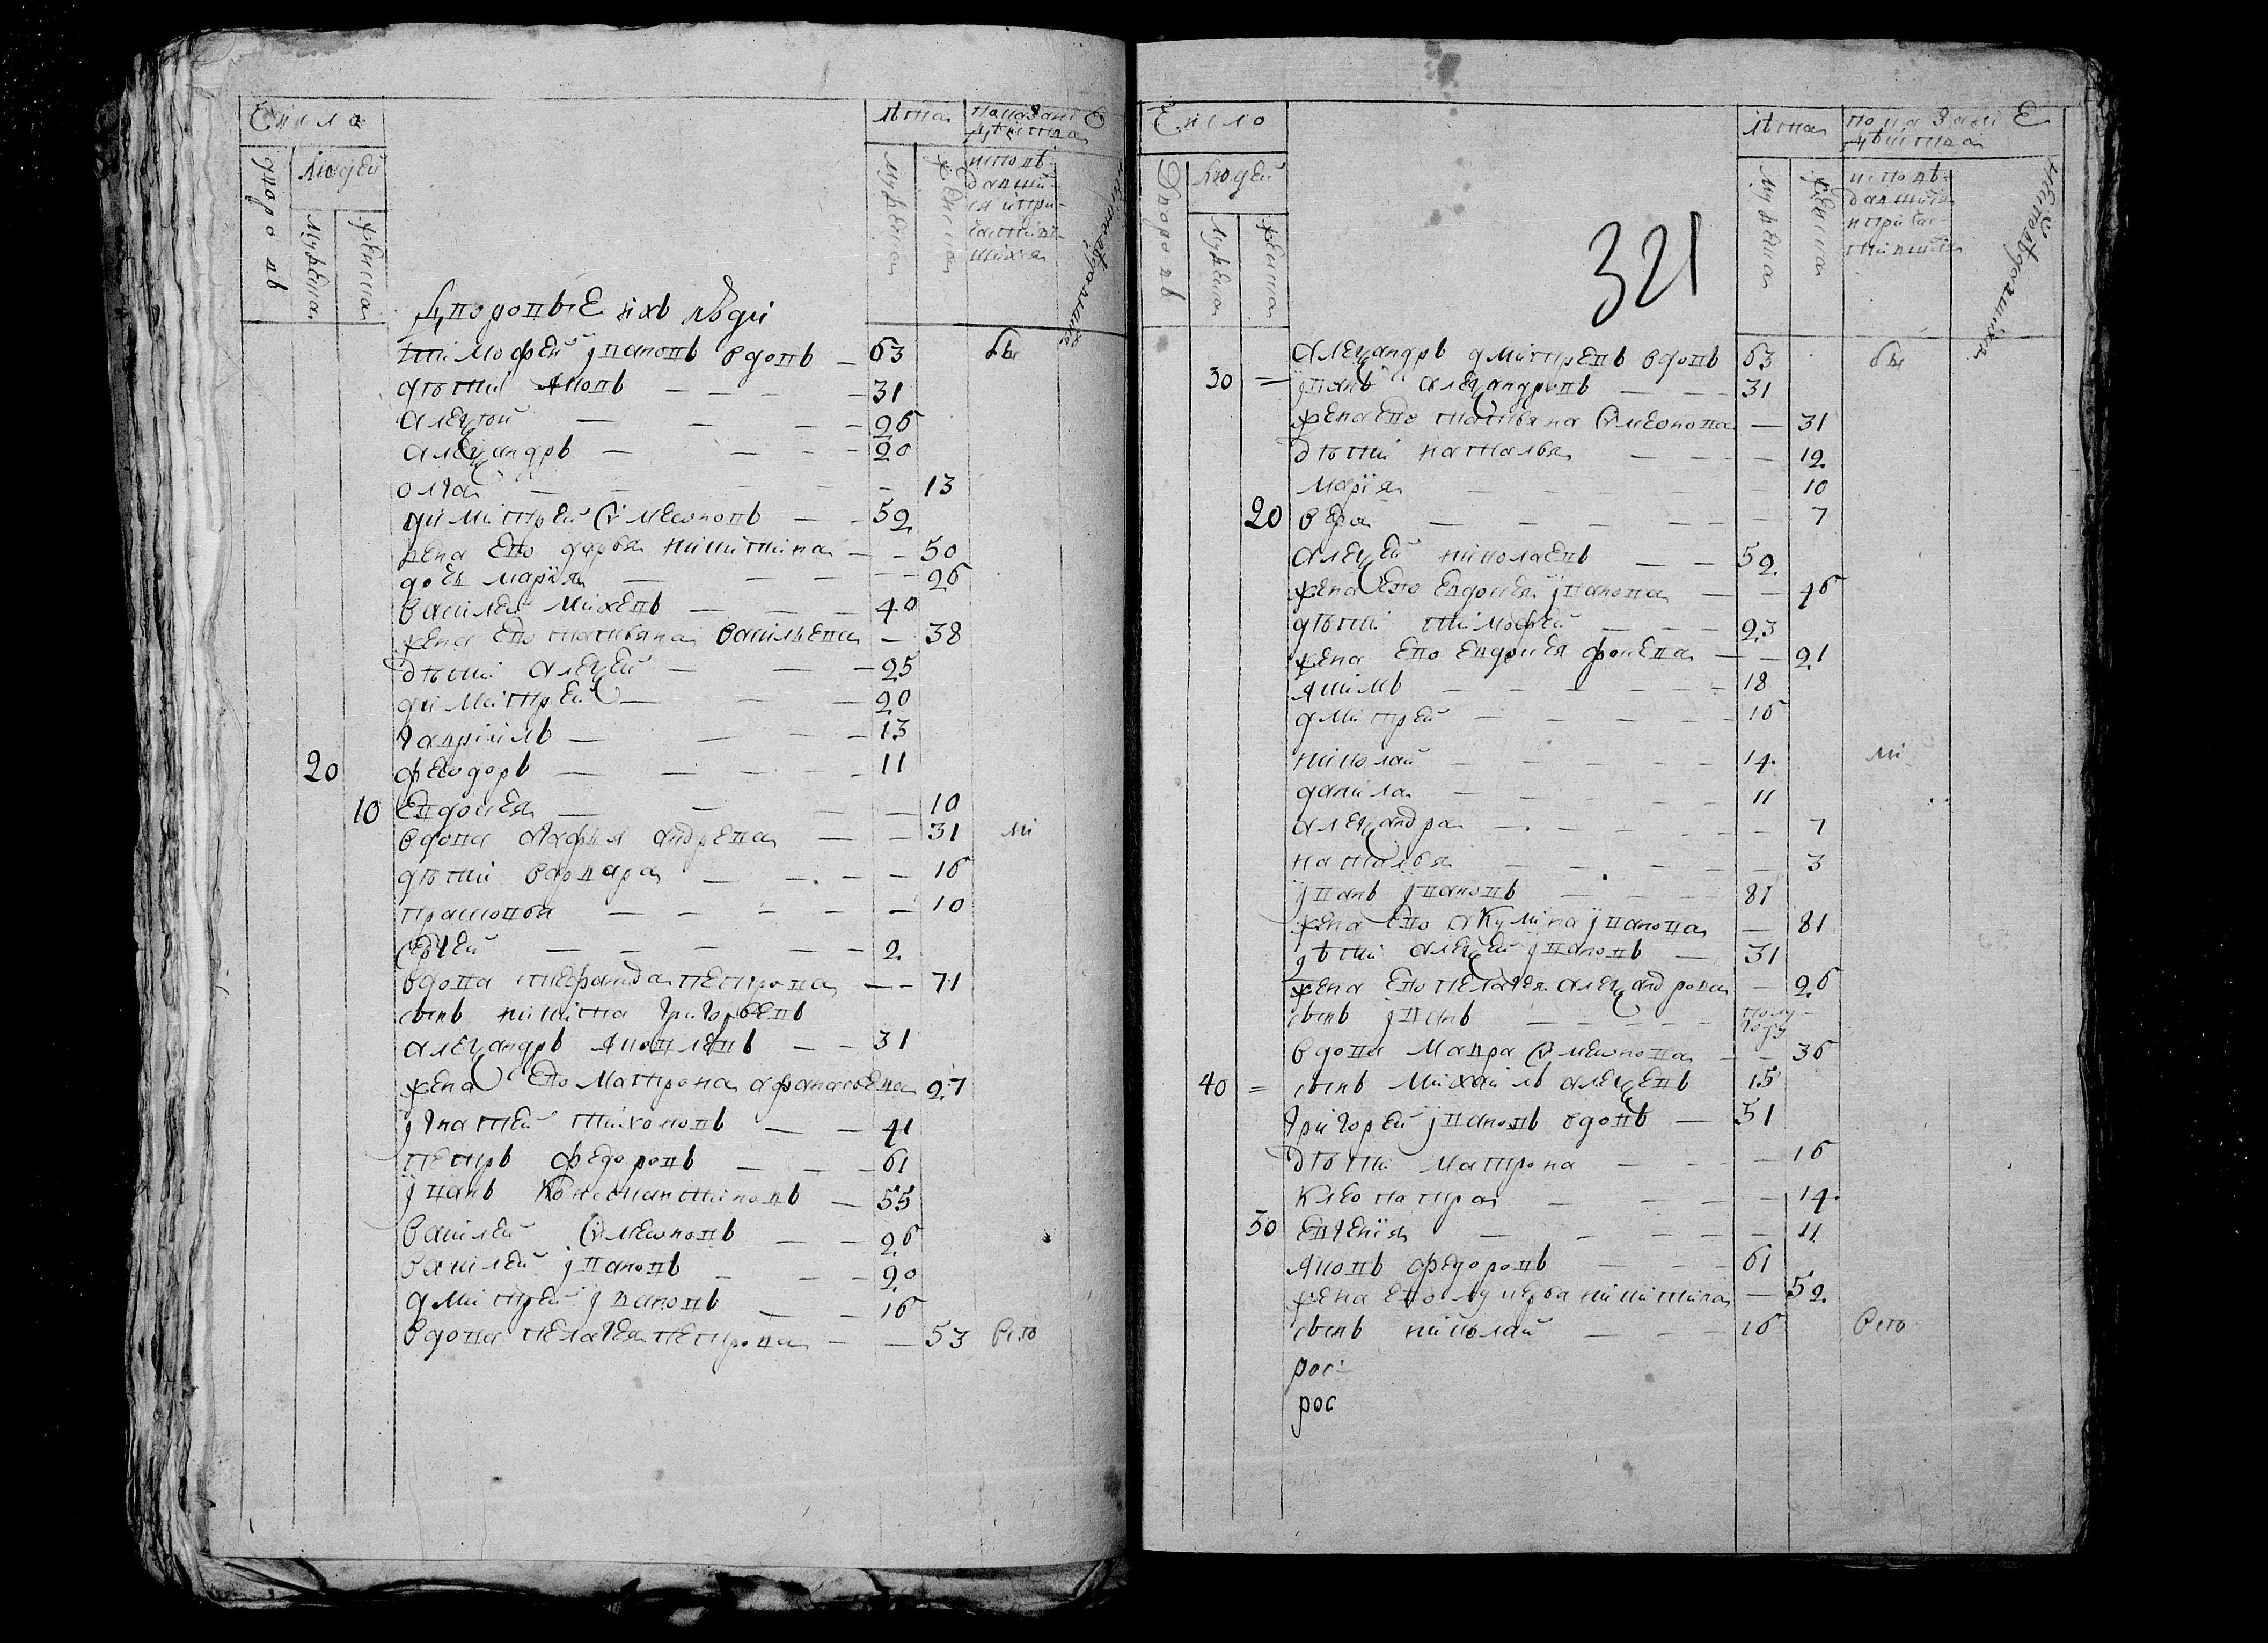 Число
дворовъ
Людей
мужеска
женска
Лѣта
мужеска
женска
показаніе
дѣйства
исповѣ-
давши-
ся и при-
частив-
шихся
неисповѣдавшихся
Дворовые ихъ люди
Тимофей јвановъ вдовъ — 63 бы
дѣти Яковъ — — — — 31
алеѯѣй — — — — 26
алеѯандръ — — — — 20
олга — — — — — 13
димитрей Сѵмеоновъ — — 52
жена его дарья никитина — — 50
дочь марїя — — — — 26
Василей Михеевъ — — — 40
жена его татьяна васильева — 38
дѣти алеѯей — — — 25
димитрей — — — 20
гавріилъ — — — 13
20 феодоръ — — — — 11
10 Евдокея — — — — 10
вдова агафья андрева — — 31 ли
дѣти варвара — — — — 16
прасковья — — — — — 10
Сергей — — — — — 2
Вдова степанида петрова — — 71
сынъ никита григорьевъ
алеѯандръ Яковлевъ — — 31
жена его матрона афанасьева 27
јгнатей тихоновъ — — 41
петръ федоровъ — — — 61
јванъ Константиновъ — 55
василей Сѵмеоновъ — — 26
василей јвановъ — — — 20
дмитрей јвановъ — — 16
вдова пелагея петрова — — 53 всѣ
Число
Дворовъ
Людей
мужеска
женска
321
Лѣта
мужеска
женска
показаніе
дѣйства
исповѣ-
давшихся
и причас-
тившихся
неисповѣдавшихся
алеѯандръ дмитревъ вдовъ 63 бы
30 = јванъ алеѯандровъ — — — 31
жена его татьяна Сѵмеонова — 31
дѣти наталья — — — — 12
марїя — — — — — 10
20 вера — — — — — — 7
алеѯей николаевъ — — 52
жена его евдокея јванова — — 46
дѣти тимофей — — — 23
жена его евдокея фокева — — 21
якимъ — — — — — 18
дмитрей — — — — — 16
николай — — — — — 14 ли
данила — — — — — 11
алеѯандра — — — — — 7
наталья — — — — — 3
јванъ јвановъ — — — 81
жена его акулина јванова — 81
дѣти алеѯей јвановъ — 31
жена его пелагея алеѯандрова — 26
сынъ јванъ — — — — — полу-
году
вдова мавра Сѵмеонова — — 36
40 = сынъ михаилъ алеѯевъ 15
григорей јвановъ вдовъ — 51
дѣти матрона — — — 16
Клеопатра — — — — 14
30 евгенїя — — — — — 11
Яковъ федоровъ — — — 61
жена его лукерья никитина — 52
сынъ николай — — — 16 всѣ
рос
рос